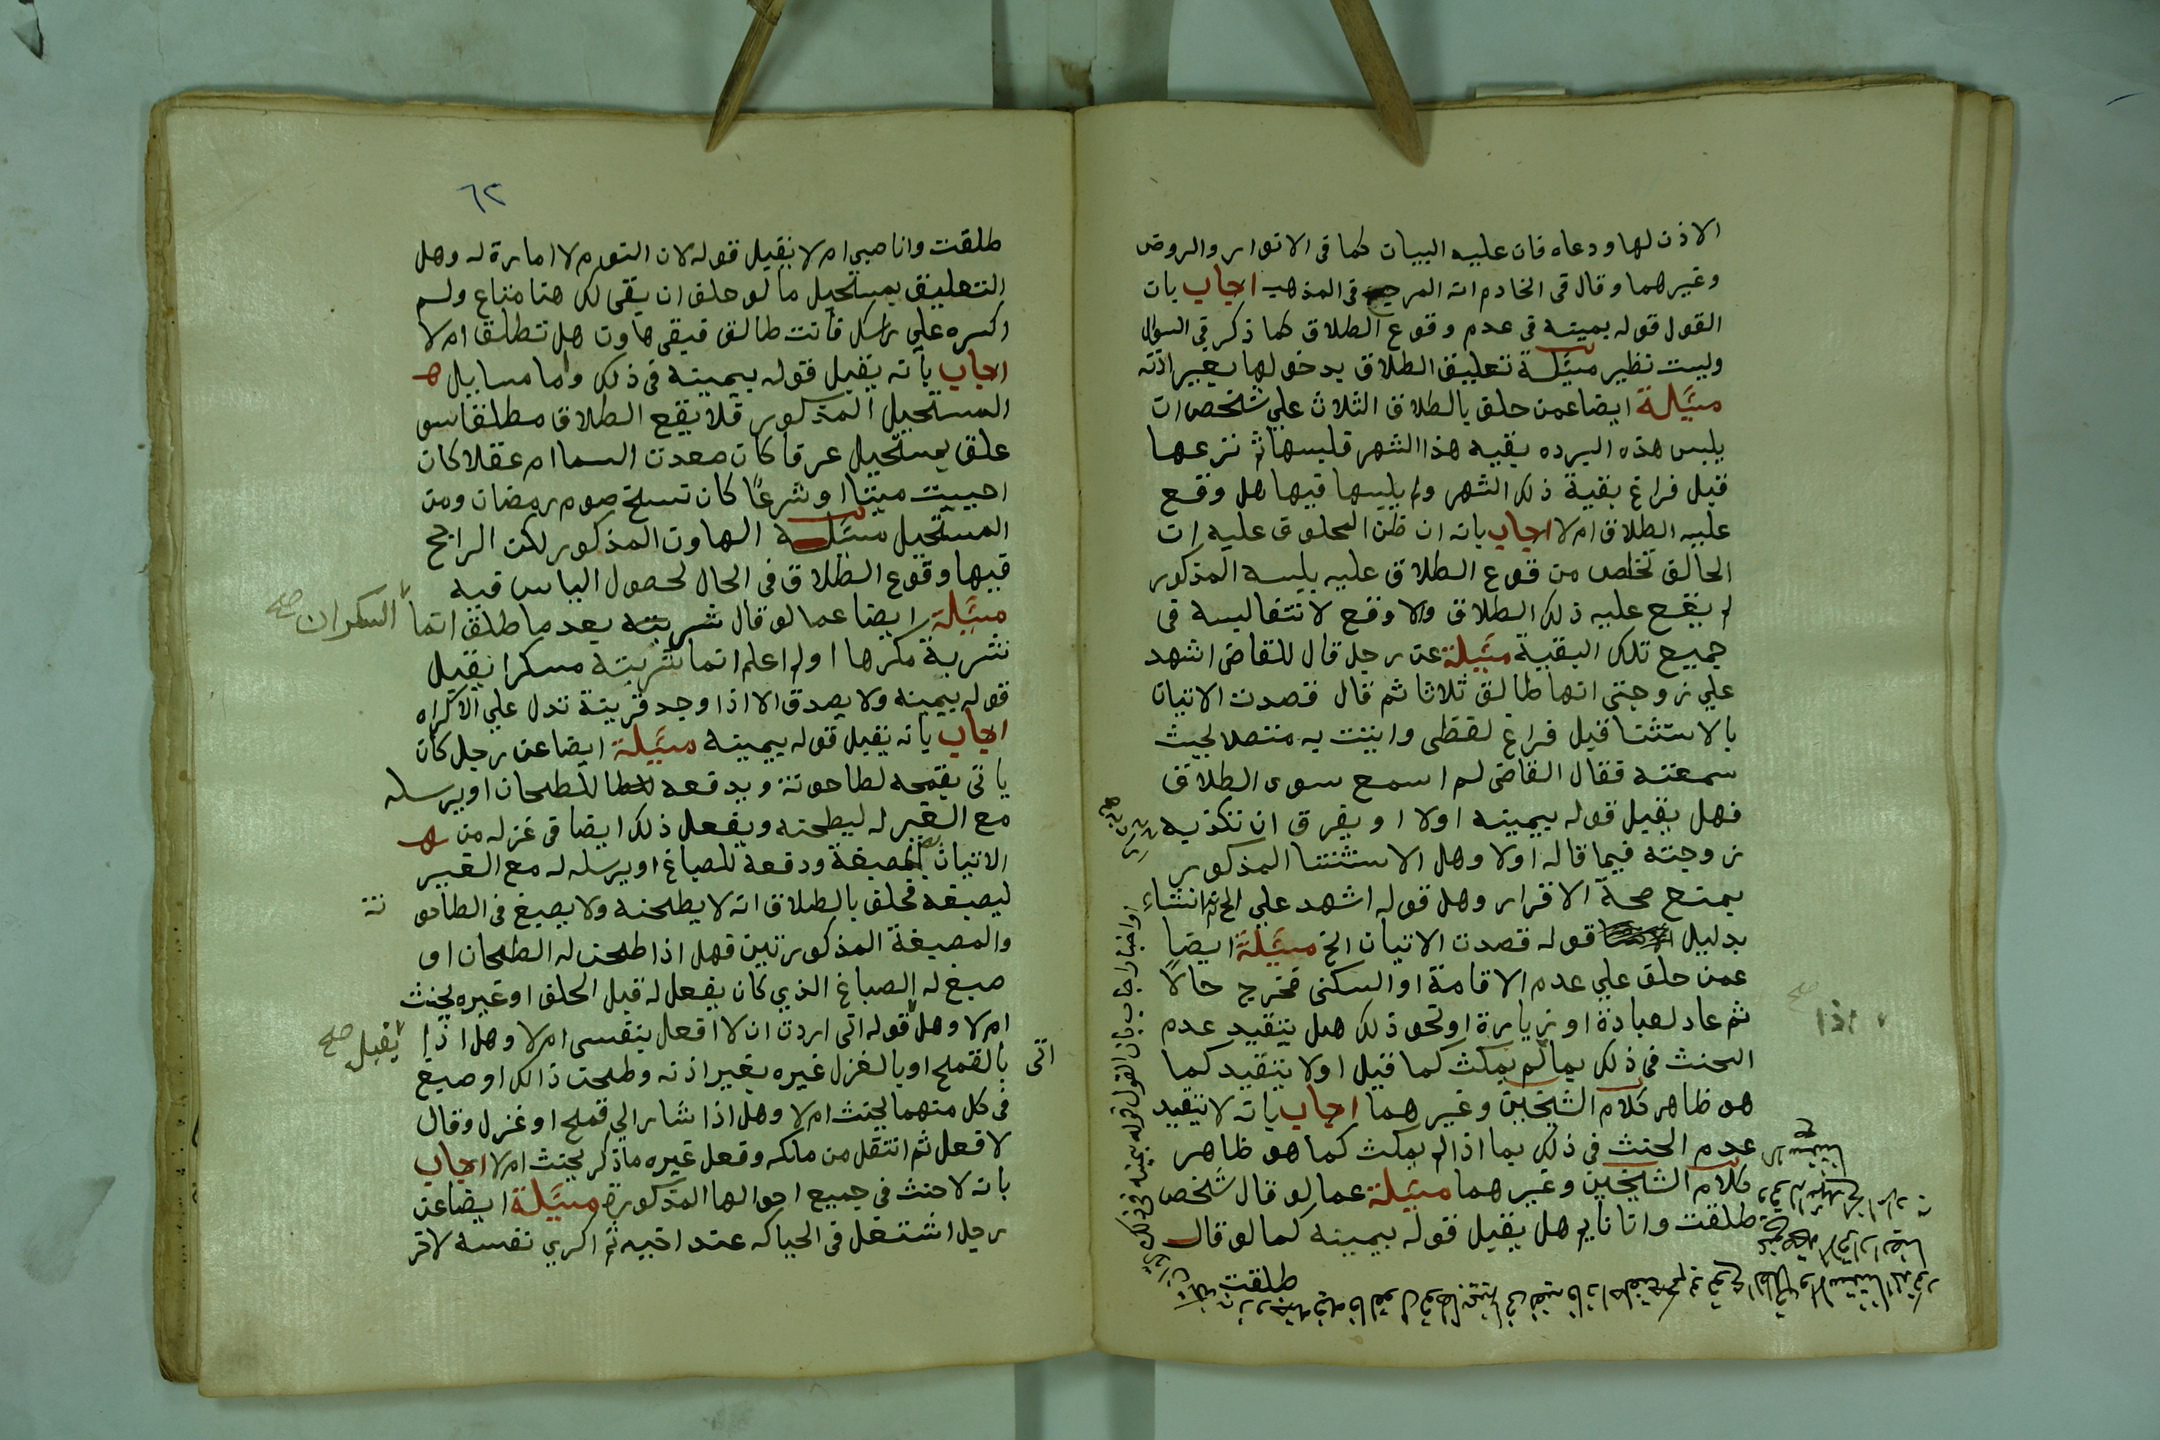 الاذن لها ودعاه فان عليه البيان كما فى الانوار والروض
وغيرهما وقال فى الخادم انه المرجح فى المذهب اجاب بان
القول قوله بمينه فى عدم وقوع الطلاق كما ذكر فى السوال
وليست نظير مسئلة تعليق الطلاق بدخولها بغير اذنه
مسئلة ايضا عمن حلق بالطلاق الثلاث علي شخص ان
يلبس هذه البرده بقية هذا الشهر فلبسها ثم نزعها
قبل فراغ بقية ذلك الشهر ولم يلبسها فيها هل وقع
عليه الطلاق ام لا اجاب بانه ان ظن المحلوف عليه ان
الحالف تخلص من قوع الطلاق عليه بلبسه المذكور
لم يقع عليه ذلك الطلاق والا وقع لانتفا لبسه فى
جميع تلك البقية مسئلة عن رجل قال للقاضى اشهد
علي زوجتى انها طالق ثلاثا ثم قال قصدت الاتيان
بالاستثنا قبل فراغ لفظى واتيت به متصلا بحيث
سمعته فقال القاضى لم اسمع سوى الطلاق
فهل يقبل قوله بيمينه اولا او يفرق ان تكذبه
زوجته فيما قاله اولا وهل الاستثنا المذكور
يمنع صحة الاقرار وهل قوله اشهد علي الخ انشاء
بدليل قوله قصدت الاتيان الخ مسئلة ايضا
عمن حلق علي عدم الاقامة او السكنى فخرج حالا
ثم عاد لعيادة او زيارة او نحو ذلك هل يتقيد عدم
الحنث فى ذلك بما لم يمكث كما قيل اولا يتقيد كما
هو ظاهر كلام الشيخين وغيرهما اجاب بانه لا يتقيد
عدم الحنث فى ذلك بما اذا لم يمكث كما هو ظاهر
كلام الشيخين وغيرهما مسئلة عما لو قال شخص
طلقت وانا نايم هل يقبل قوله بيمينه كما لو قال
طلقت
اذا صح
او اخبار اجاب بان القول قوله بيمينه فى ذلك
٦٢
طلقت وانا صبي ام لا يقبل قوله لان النوم لا امارة له وهل
التعليق بمستحيل ما لو حلف ان بقى لك هنا متاع ولم
اكسره علي راسك فانت طالق فبقى هاون هل تطلق ام لا
اجاب بانه يقبل قوله بيمينه فى ذلك واما مسايل
المستحيل المذكور فلا يقع الطلاق مطلقا سو
علق بمستحيل عرفا كان صعدت السما ام عقلا كان
احييت ميتا او شرعا كان نسخ صوم رمضان ومن
المستحيل مسئلة الهاون المذكور لكن الراجح
فيها وقوع الطلاق فى الحال لحصول الياس فيه
مسئلة ايضا عما لو قال شربته بعد ما طلق انما
السكران صح
شربة مكرها او لم اعلم انما شربته مسكرا يقبل
قوله بيمينه ولا يصدق الا اذا وجد قرينة تدل علي الاكراه
اجاب بانه يقبل قوله بيمينه مسئلة ايضا عن رجل كان
ياتى بقمحه لطاحونة ويدفعه للطحان او يرسله
مع الغير له ليطحنه ويفعل ذلك ايضا فى غزله من
الاتيان للمصبغة ودفعة للصباغ او يرسله له مع الغير
ليصبغه فحلف بالطلاق انه لا يطحنه ولا يصبغ فى الطاحو
نة
والمصبغة المذكورتين فهل اذا طحن له الطحان او
صبغ له الصباغ الذي كان يفعل له قبل الحلف او غيره يحنث
ام لا وهل قوله انى اردت ان لا افعل بنفسى ام لا وهل اذا
يقبل صح
اتى
بالقمح او بالغزل غيره بغير اذنه وطحن ذالك او صبغ
فى كل منهما يحنث ام لا وهل اذا شار الي قمح او غزل وقال
لا فعل ثم انتقل من ملكه وفعل غيره ما ذكر يحنث ام لا اجاب
بانه لا حنث فى جميع احوالها المذكورة مسئلة ايضا عن
رجل اشتغل فى الحياكه عند اخيه ثم اكري نفسه لاخر